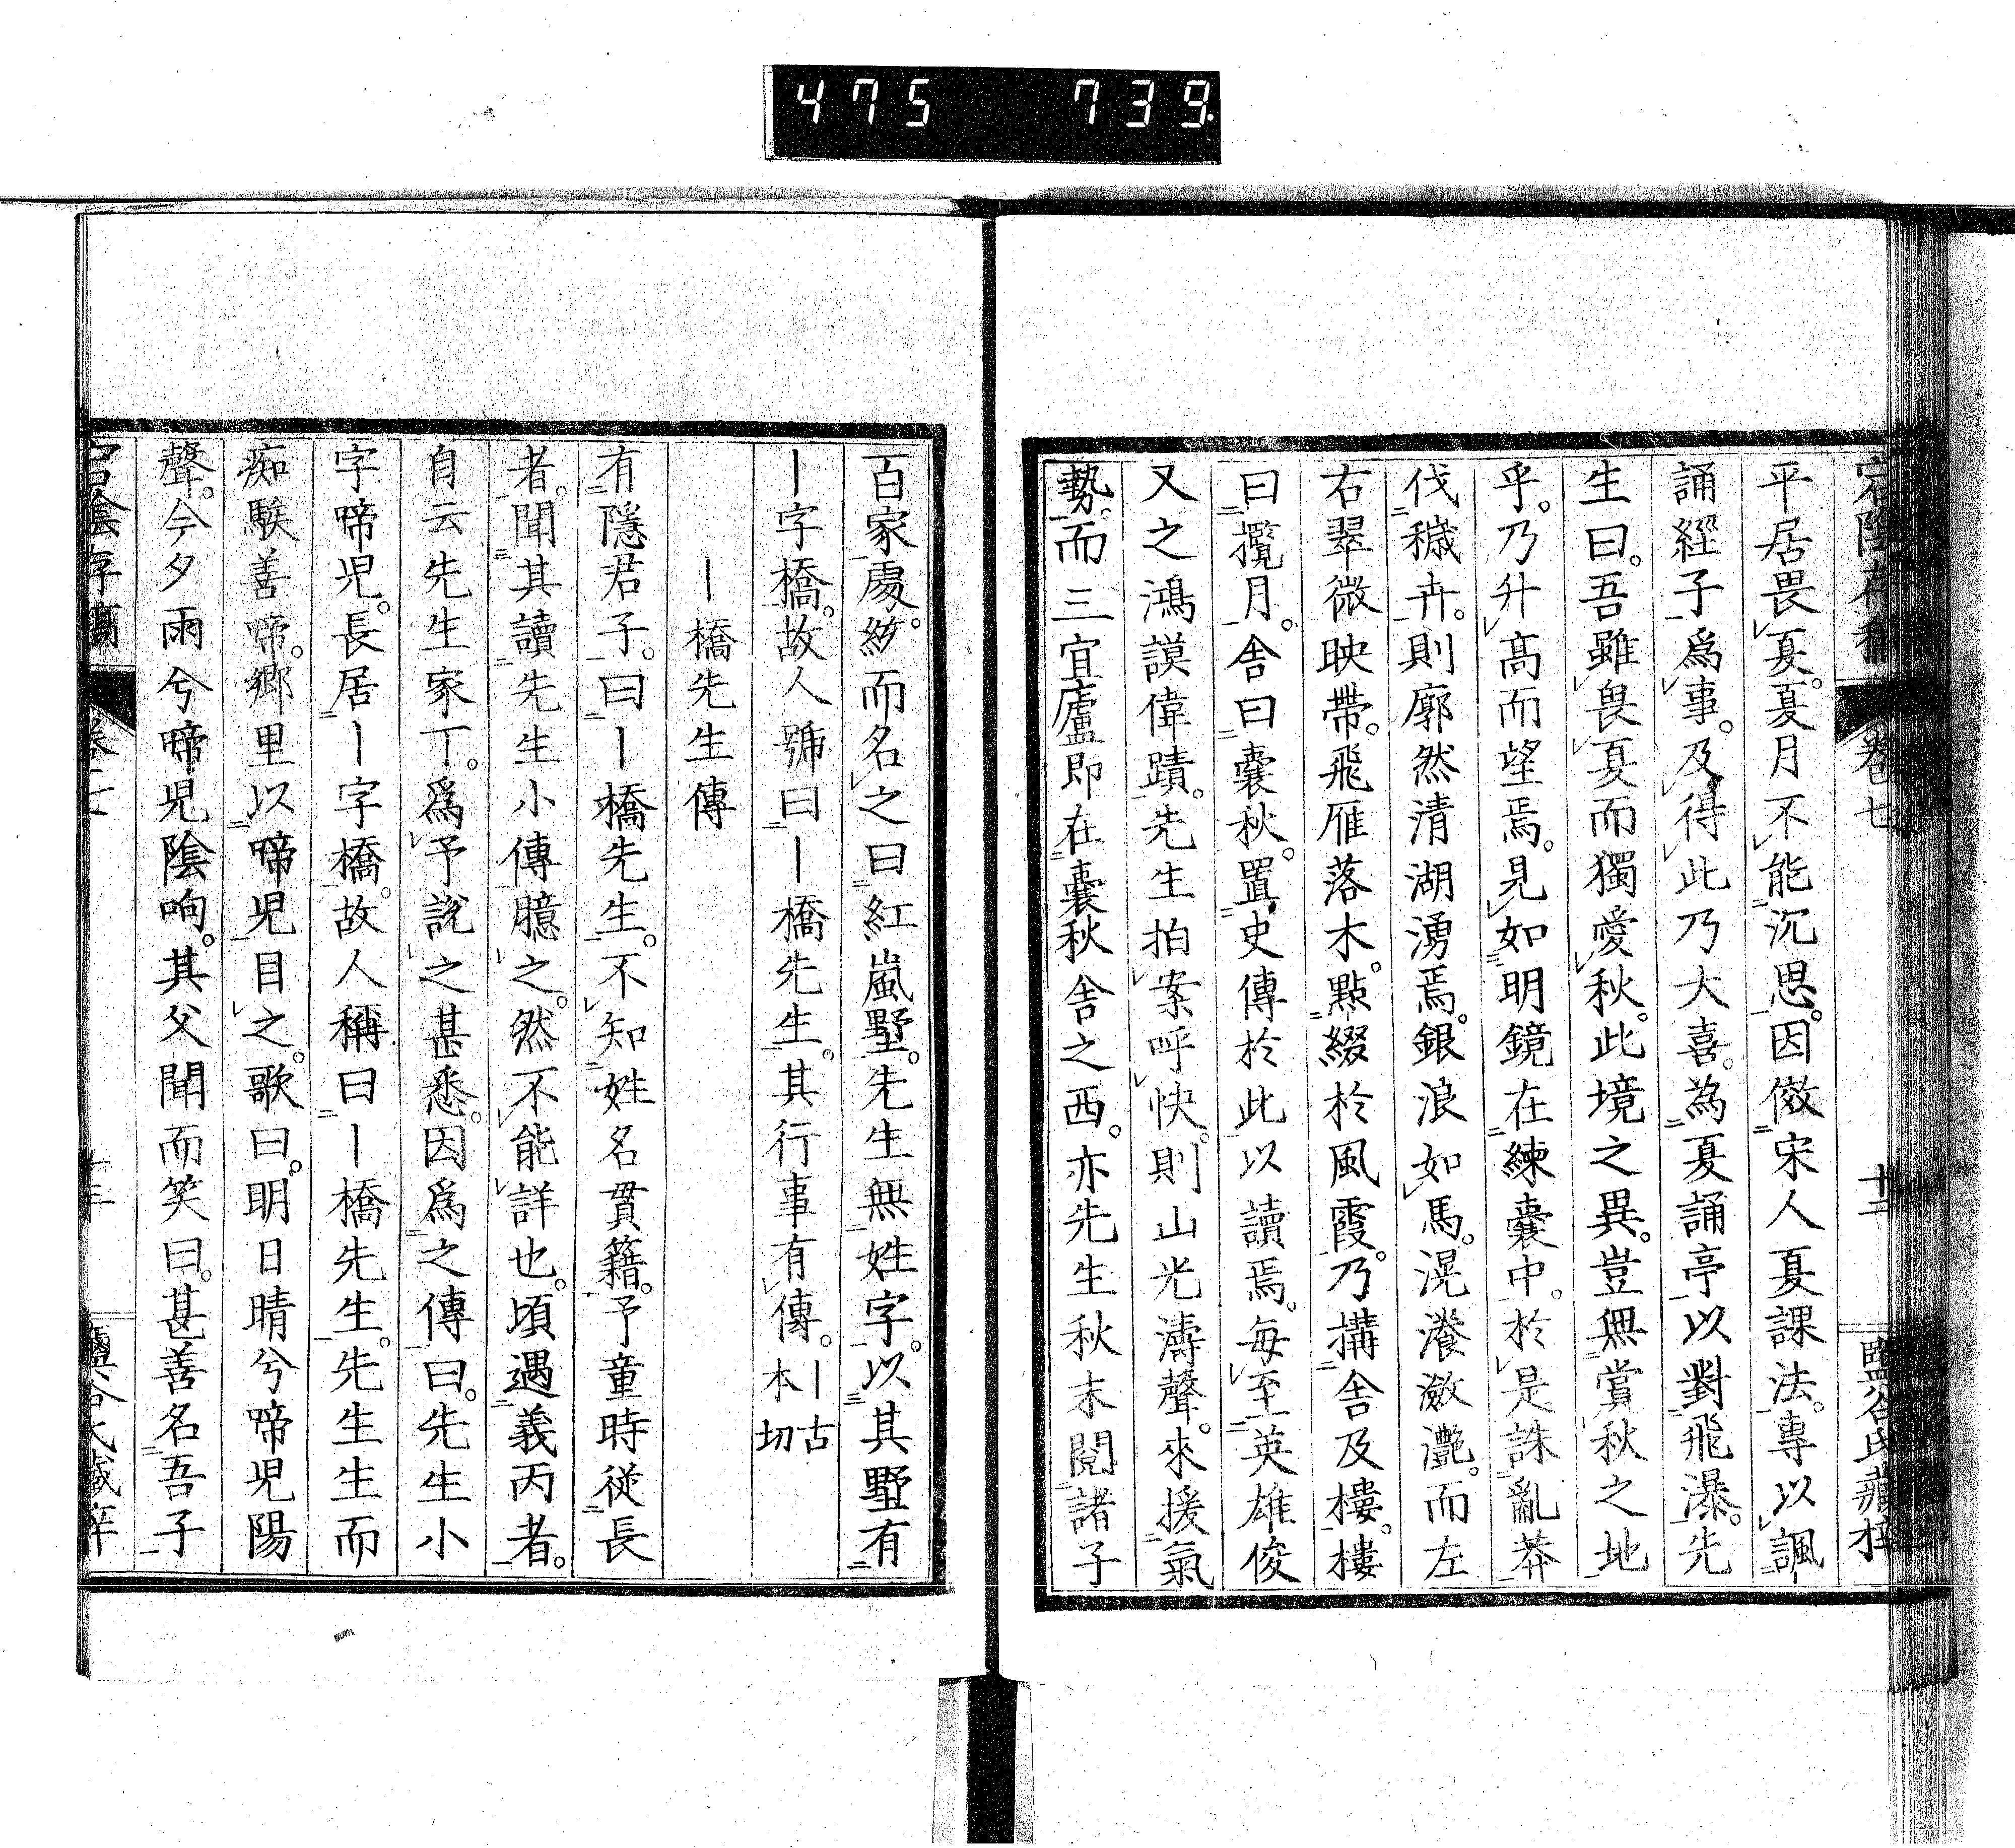 475 739
宕陰存稿 卷七 十二 鹽谷氏藏梓
平居畏夏。夏月不能沉思。因倣宋人夏課法。專以諷
誦經子爲事。及得此乃大喜。為夏誦亭以對飛瀑。先
生曰。吾雖畏夏而獨愛秋。此境之異。豈無賞秋之地
乎。乃升高而望焉。見如明鏡在練囊中。於是誅亂莽
伐穢卉。則廓然清湖湧焉。銀浪如馬。滉瀁瀲灔。而左
右翠微映帶。飛雁落木。點綴於風霞。乃搆舍及樓。樓
曰攬月。舍曰囊秋。置史傳於此以讀焉。每至英雄俊
又之鴻謨偉蹟。先生拍案呼快。則山光濤聲。來援氣
勢。而三宜廬即在囊秋舍之西。亦先生秋末閲諸子
百家處。紡而名之曰紅嵐墅。先生無姓字。以其墅有
丨字橋。故人號曰丨橋先生。其行事有傳。丨古本切
丨橋先生傳
有隱君子。曰丨橋先生。不知姓名貫籍。予童時從長
者。聞其讀先生小傳臆之。然不能詳也。頃遇義丙者。
自云先生家丁。爲予說之甚悉。因爲之傳曰。先生小
字啼児。長居丨字橋。故人稱曰丨橋先生。先生生而
痴騃善啼。鄉里以啼児目之。歌曰。明日晴兮啼児陽
聲。今夕雨兮啼児陰响。其父聞而笑曰。甚善名吾子
宕陰存稿 卷七 十三 鹽谷氏藏梓